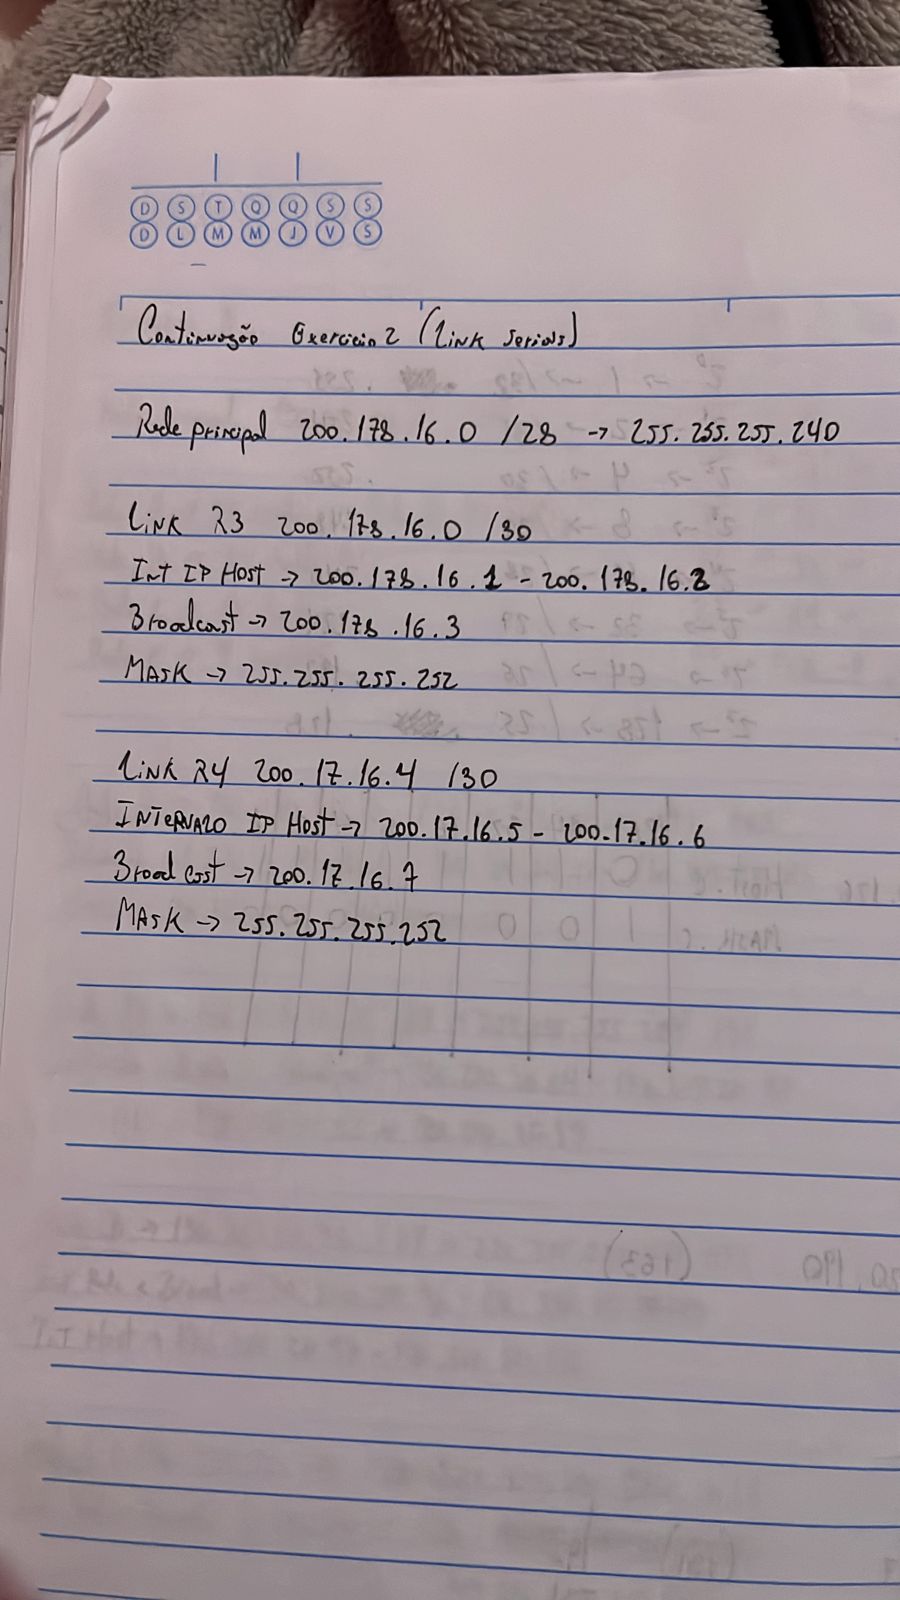 D S T Q Q S S
D L M M J V S
Continuação Exercicio 2 (Link Seriais)
Rede principal 200.178.16.0 /28 -> 255.255.255.240
Link R3 200.178.16.0 /30
Int IP Host -> 200.178.16.1 - 200.178.16.2
Broadcast -> 200.178.16.3
Mask -> 255.255.255.252
Link R4 200.17.16.4 /30
Intervalo IP Host -> 200.17.16.5 - 200.17.16.6
Broadcast -> 200.17.16.7
Mask -> 255.255.255.252